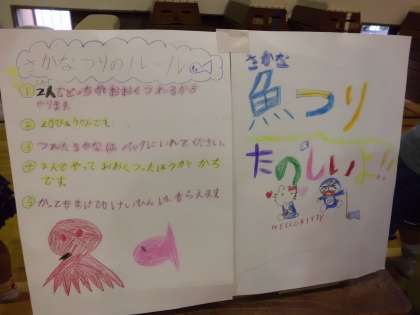 さかなつりのルール
① 2人でどっちがおおくつれるかを
やります
② 20びょうかんです。
③ つれたさかなは バックにいれてください。
④ 2人でやって おおくつったほうが かち
です
⑤ かってもまけてもけいひんは もらえます
さかな
魚つり
たのしいよ!!
HELLO KITTY